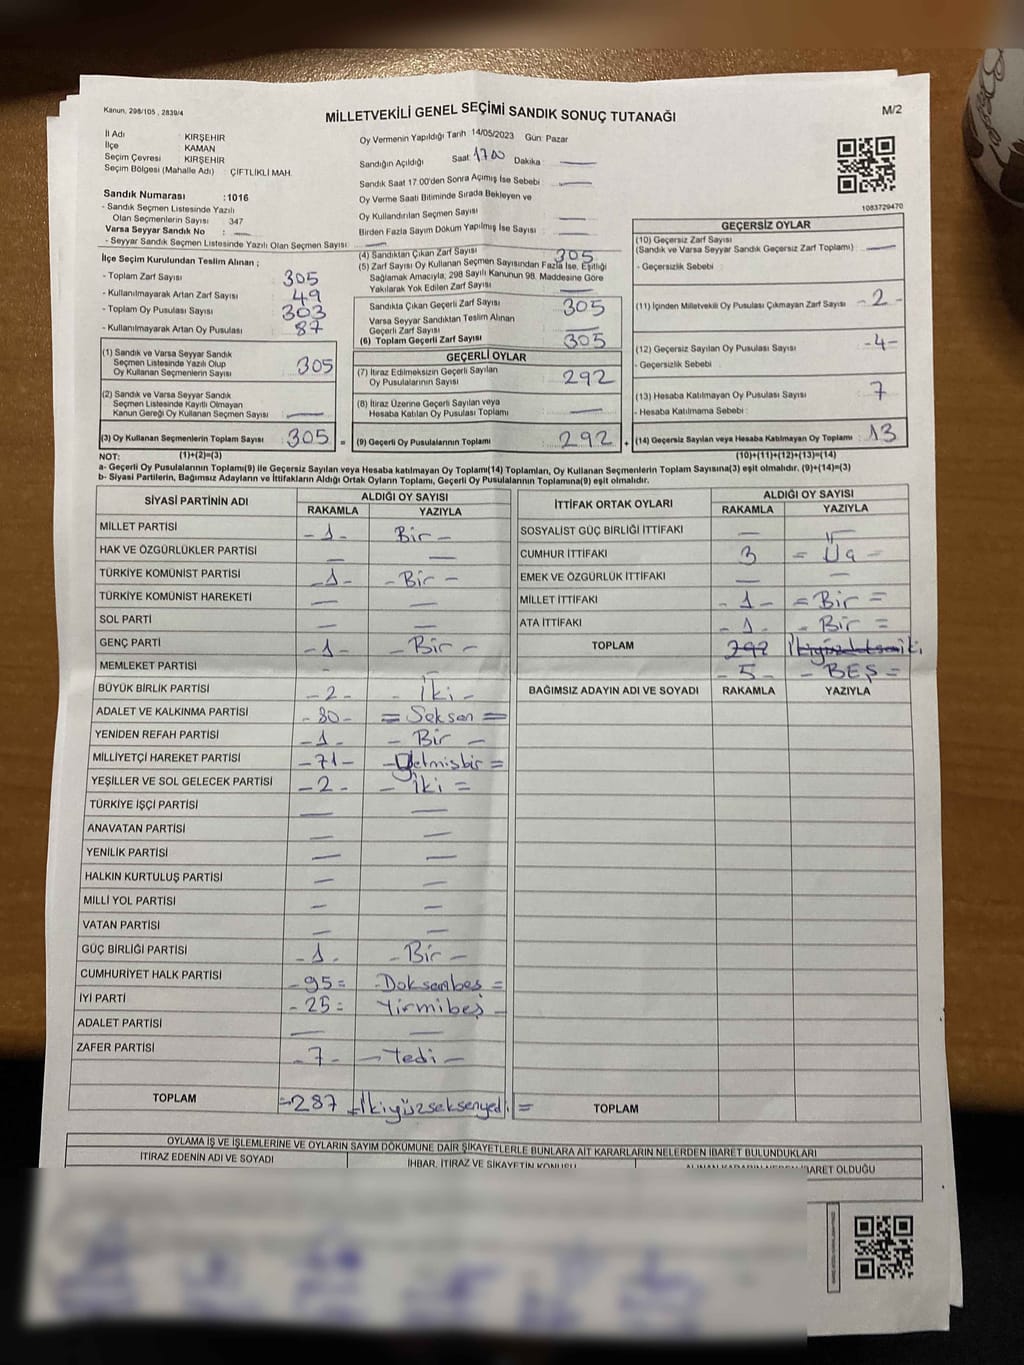 Kanun, 298/105 , 2839/4
MİLLETVEKİLİ GENEL SEÇİMİ SANDIK SONUÇ TUTANAĞI
M/2
İl Adı : KIRŞEHİR
İlçe : KAMAN
Seçim Çevresi : KIRŞEHİR
Seçim Bölgesi (Mahalle Adı) : ÇİFTLİKLİ MAH.
Sandık Numarası :1016
- Sandık Seçmen Listesinde Yazılı
Olan Seçmenlerin Sayısı : 347
Varsa Seyyar Sandık No : —
- Seyyar Sandık Seçmen Listesinde Yazılı Olan Seçmen Sayısı: —
Oy Vermenin Yapıldığı Tarih 14/05/2023 Gün: Pazar
Sandığın Açıldığı Saat: 17 00 Dakika : —
Sandık Saat 17:00'den Sonra Açımış İse Sebebi : —
Oy Verme Saati Bitiminde Sırada Bekleyen ve
Oy Kullandırılan Seçmen Sayısı : —
Birden Fazla Sayım Döküm Yapılmış İse Sayısı : —
1083729470
İlçe Seçim Kurulundan Teslim Alınan ;
- Toplam Zarf Sayısı : 305
- Kullanılmayarak Artan Zarf Sayısı : 49
- Toplam Oy Pusulası Sayısı : 303
- Kullanılmayarak Artan Oy Pusulası : 87
(1) Sandık ve Varsa Seyyar Sandık
Seçmen Listesinde Yazılı Olup
Oy Kullanan Seçmenlerin Sayısı : 305
(2) Sandık ve Varsa Seyyar Sandık
Seçmen Listesinde Kayıtlı Olmayan
Kanun Gereği Oy Kullanan Seçmen Sayısı : —
(3) Oy Kullanan Seçmenlerin Toplam Sayısı : 305 =
(4) Sandıktan Çıkan Zarf Sayısı : 305
(5) Zarf Sayısı Oy Kullanan Seçmen Sayısından Fazla İse, Eşitliği
Sağlamak Amacıyla, 298 Sayılı Kanunun 98. Maddesine Göre
Yakılarak Yok Edilen Zarf Sayısı : —
Sandıkta Çıkan Geçerli Zarf Sayısı : 305
Varsa Seyyar Sandıktan Teslim Alınan
Geçerli Zarf Sayısı : —
(6) Toplam Geçerli Zarf Sayısı : 305
GEÇERLİ OYLAR
(7) İtiraz Edilmeksizin Geçerli Sayılan
Oy Pusulalarının Sayısı : 292
(8) İtiraz Üzerine Geçerli Sayılan veya
Hesaba Katılan Oy Pusulası Toplamı : —
(9) Geçerli Oy Pusulalarının Toplamı : 292 +
GEÇERSİZ OYLAR
(10) Geçersiz Zarf Sayısı
(Sandık ve Varsa Seyyar Sandık Geçersiz Zarf Toplamı) : —
- Geçersizlik Sebebi :
(11) İçinden Milletvekili Oy Pusulası Çıkmayan Zarf Sayısı : - 2 -
(12) Geçersiz Sayılan Oy Pusulası Sayısı : -4-
- Geçersizlik Sebebi :
(13) Hesaba Katılmayan Oy Pusulası Sayısı : 7
- Hesaba Katılmama Sebebi :
(14) Geçersiz Sayılan veya Hesaba Katılmayan Oy Toplamı : 13
NOT: (1)+(2)=(3) (10)+(11)+(12)+(13)=(14)
a- Geçerli Oy Pusulalarının Toplamı(9) ile Geçersiz Sayılan veya Hesaba katılmayan Oy Toplamı(14) Toplamları, Oy Kullanan Seçmenlerin Toplam Sayısına(3) eşit olmalıdır. (9)+(14)=(3)
b- Siyasi Partilerin, Bağımsız Adayların ve İttifakların Aldığı Ortak Oyların Toplamı, Geçerli Oy Pusulalarının Toplamına(9) eşit olmalıdır.
SİYASİ PARTİNİN ADI ALDIĞI OY SAYISI
RAKAMLA YAZIYLA
MİLLET PARTİSİ -1- Bir -
HAK VE ÖZGÜRLÜKLER PARTİSİ — —
TÜRKİYE KOMÜNİST PARTİSİ -1- - Bir -
TÜRKİYE KOMÜNİST HAREKETİ — —
SOL PARTİ — —
GENÇ PARTİ -1- - Bir -
MEMLEKET PARTİSİ - —
BÜYÜK BİRLİK PARTİSİ -2- - İki -
ADALET VE KALKINMA PARTİSİ -80- = Seksen =
YENİDEN REFAH PARTİSİ -1- - Bir -
MİLLİYETÇİ HAREKET PARTİSİ -71- -Yetmişbir =
YEŞİLLER VE SOL GELECEK PARTİSİ -2- - İki =
TÜRKİYE İŞÇİ PARTİSİ — —
ANAVATAN PARTİSİ — —
YENİLİK PARTİSİ — —
HALKIN KURTULUŞ PARTİSİ — —
MİLLİ YOL PARTİSİ — —
VATAN PARTİSİ — —
GÜÇ BİRLİĞİ PARTİSİ -1- - Bir -
CUMHURİYET HALK PARTİSİ -95= -Doksanbeş =
İYİ PARTİ -25= Yirmibeş -
ADALET PARTİSİ — —
ZAFER PARTİSİ -7- - Yedi -
TOPLAM =287 =İkiyüzseksenyedi =
İTTİFAK ORTAK OYLARI ALDIĞI OY SAYISI
RAKAMLA YAZIYLA
SOSYALİST GÜÇ BİRLİĞİ İTTİFAKI — —
CUMHUR İTTİFAKI 3 = Üç =
EMEK VE ÖZGÜRLÜK İTTİFAKI — —
MİLLET İTTİFAKI -1- = Bir =
ATA İTTİFAKI -1- - Bir =
TOPLAM 292 İkiyüzdoksaniki
-5- - BEŞ =
BAĞIMSIZ ADAYIN ADI VE SOYADI RAKAMLA YAZIYLA
TOPLAM
OYLAMA İŞ VE İŞLEMLERİNE VE OYLARIN SAYIM DÖKÜMÜNE DAİR ŞİKAYETLERLE BUNLARA AİT KARARLARIN NELERDEN İBARET BULUNDUKLARI
İTİRAZ EDENİN ADI VE SOYADI İHBAR, İTİRAZ VE ŞİKAYETİN KONUSU ALINAN KARARIN NEDEN İBARET OLDUĞU